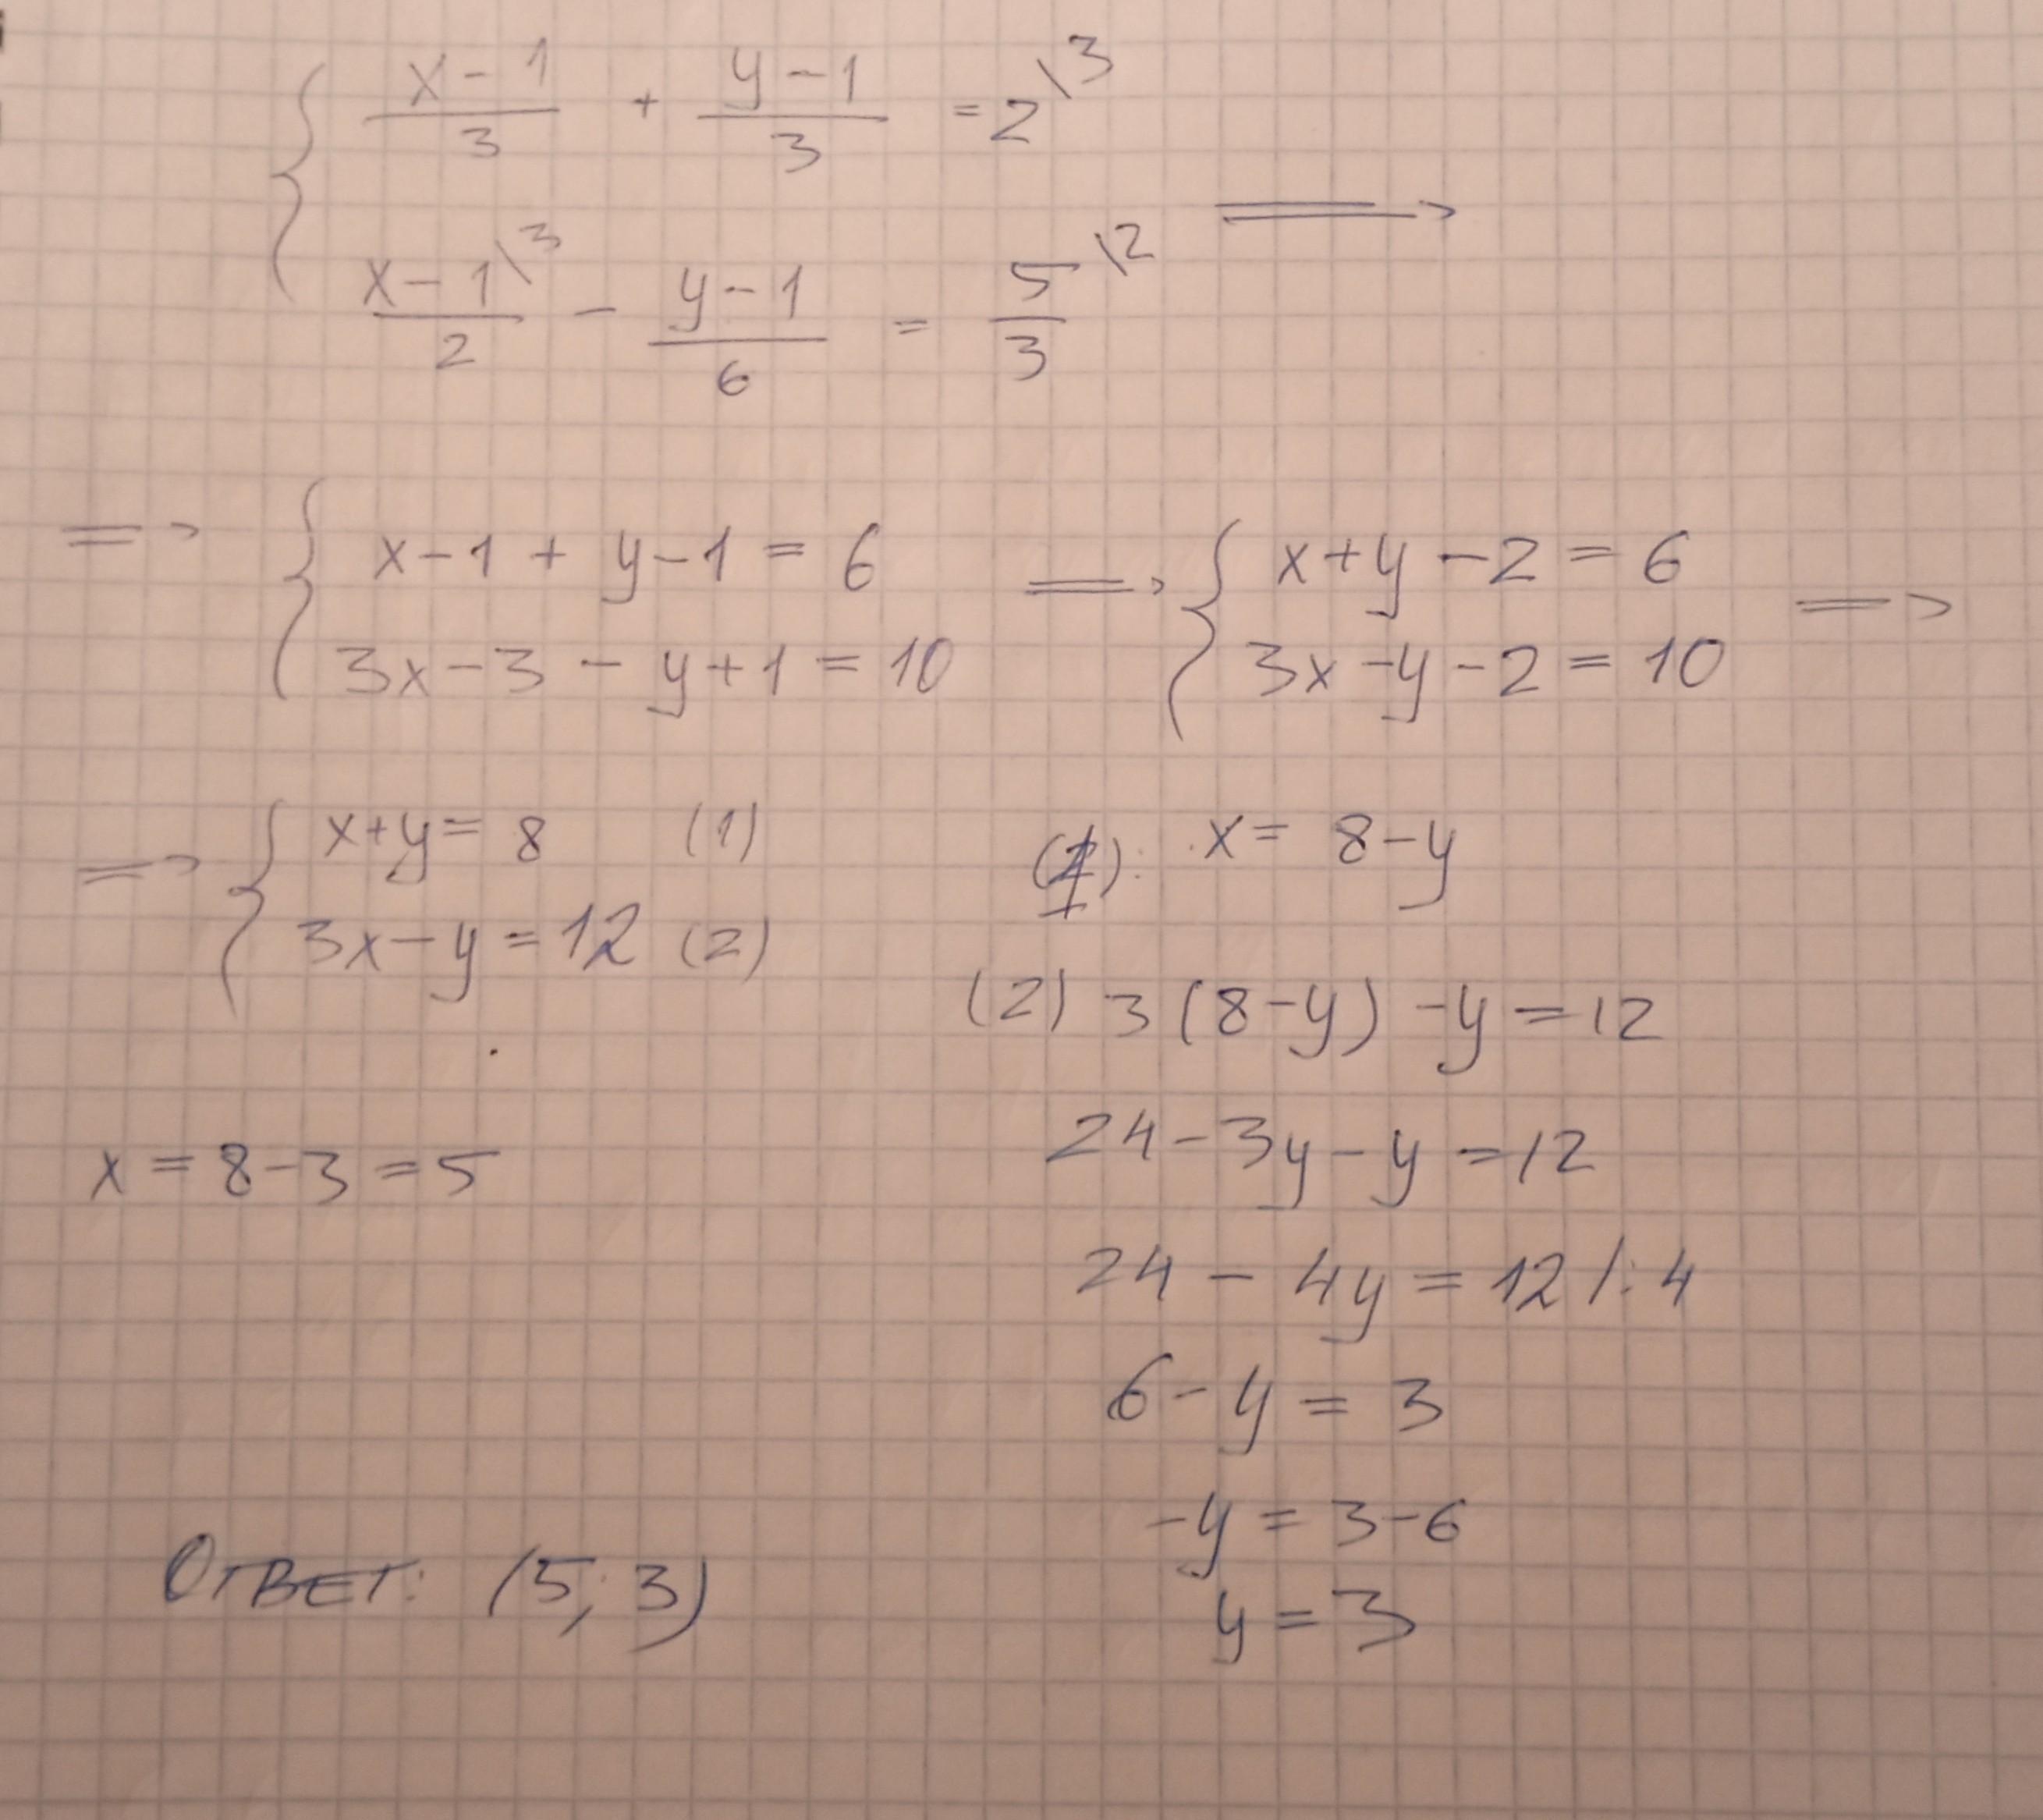 { (x-1)/3 + (y-1)/3 = 2\3
(x-1\3)/2 - (y-1)/6 = 5/3\2 =>
=> { x-1 + y-1 = 6
3x-3 - y+1 = 10
=> { x+y-2 = 6
3x-y-2 = 10 =>
=> { x+y = 8 (1)
3x-y = 12 (2)
(1): x = 8-y
(2) 3(8-y) -y = 12
24-3y-y = 12
24 - 4y = 12 /:4
6-y = 3
-y = 3-6
y = 3
x = 8-3 = 5
ОТВЕТ: (5; 3)